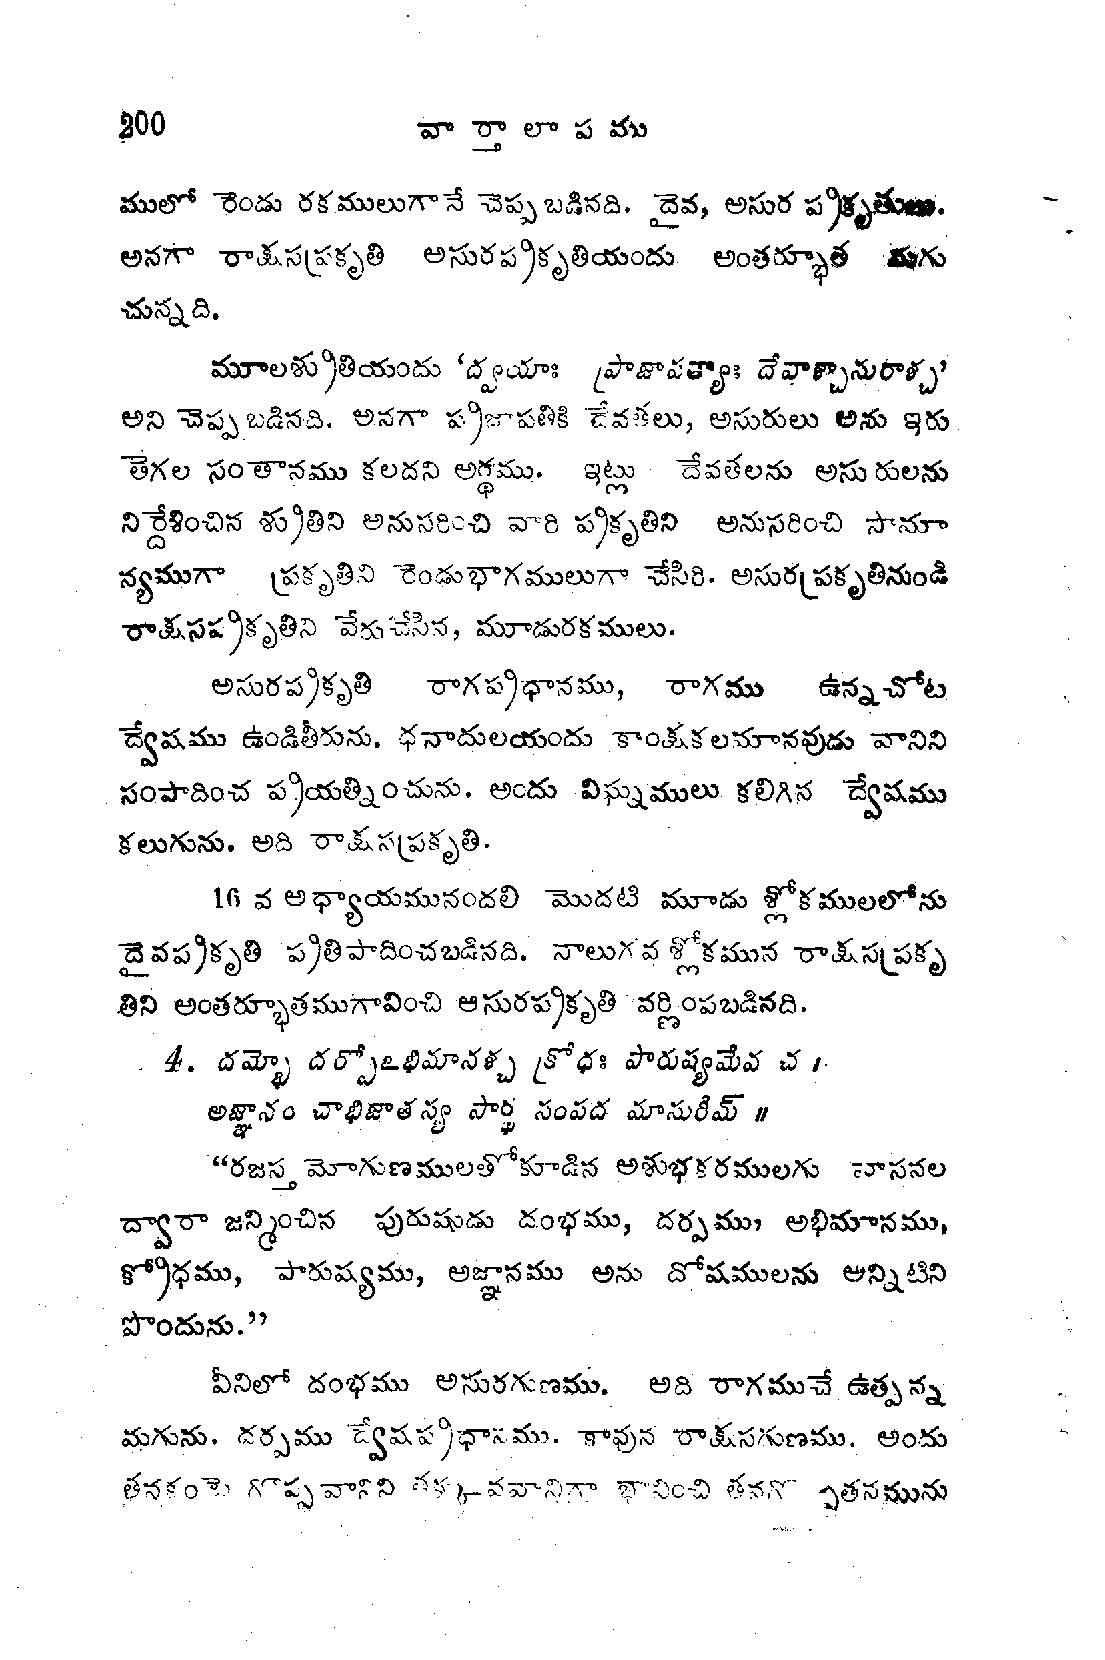 200 వార్తాలాపము
ములో రెండు రకములుగానే చెప్పబడినది. దైవ, అసుర ప్రకృతులు.
అనగా రాక్షసప్రకృతి అసురప్రకృతియందు అంతర్భూత మగు
చున్నది.
మూలశ్రుతియందు ‘ద్వయాః ప్రాజాపత్యాః దేవాశ్చాసురాశ్చ’
అని చెప్పబడినది. అనగా ప్రజాపతికి దేవతలు, అసురులు అను ఇరు
తెగల సంతానము కలదని అర్థము. ఇట్లు దేవతలను అసురులను
నిర్దేశించిన శ్రుతిని అనుసరించి వారి ప్రకృతిని అనుసరించి సామా
న్యముగా ప్రకృతిని రెండుభాగములుగా చేసిరి. అసురప్రకృతినుండి
రాక్షసప్రకృతిని వేరుచేసిన, మూడురకములు.
అసురప్రకృతి రాగప్రధానము, రాగము ఉన్నచోట
ద్వేషము ఉండితీరును. ధనాదులయందు కాంక్షకలమానవుడు వానిని
సంపాదించ ప్రయత్నించును. అందు విఘ్నములు కలిగిన ద్వేషము
కలుగును. అది రాక్షసప్రకృతి.
16 వ అధ్యాయమునందలి మొదటి మూడు శ్లోకములలోను
దైవప్రకృతి ప్రతిపాదించబడినది. నాలుగవ శ్లోకమున రాక్షసప్రకృ
తిని అంతర్భూతముగావించి ఆసురప్రకృతి వర్ణింపబడినది.
4. దమ్భో దర్పోఽభిమానశ్చ క్రోధః పారుష్యమేవ చ ।
అజ్ఞానం చాభిజాతస్య పార్థ సంపద మాసురీమ్ ॥
“రజస్తమోగుణములతోకూడిన అశుభకరములగు వాసనల
ద్వారా జన్మించిన పురుషుడు దంభము, దర్పము, అభిమానము,
క్రోధము, పారుష్యము, అజ్ఞానము అను దోషములను అన్నిటిని
పొందును.”
వీనిలో దంభము అసురగుణము. అది రాగముచే ఉత్పన్న
మగును. దర్పము ద్వేషప్రధానము. కావున రాక్షసగుణము. అందు
తనకంటె గొప్పవానిని తక్కువవానిగా భావించి తనగొప్పతనమును